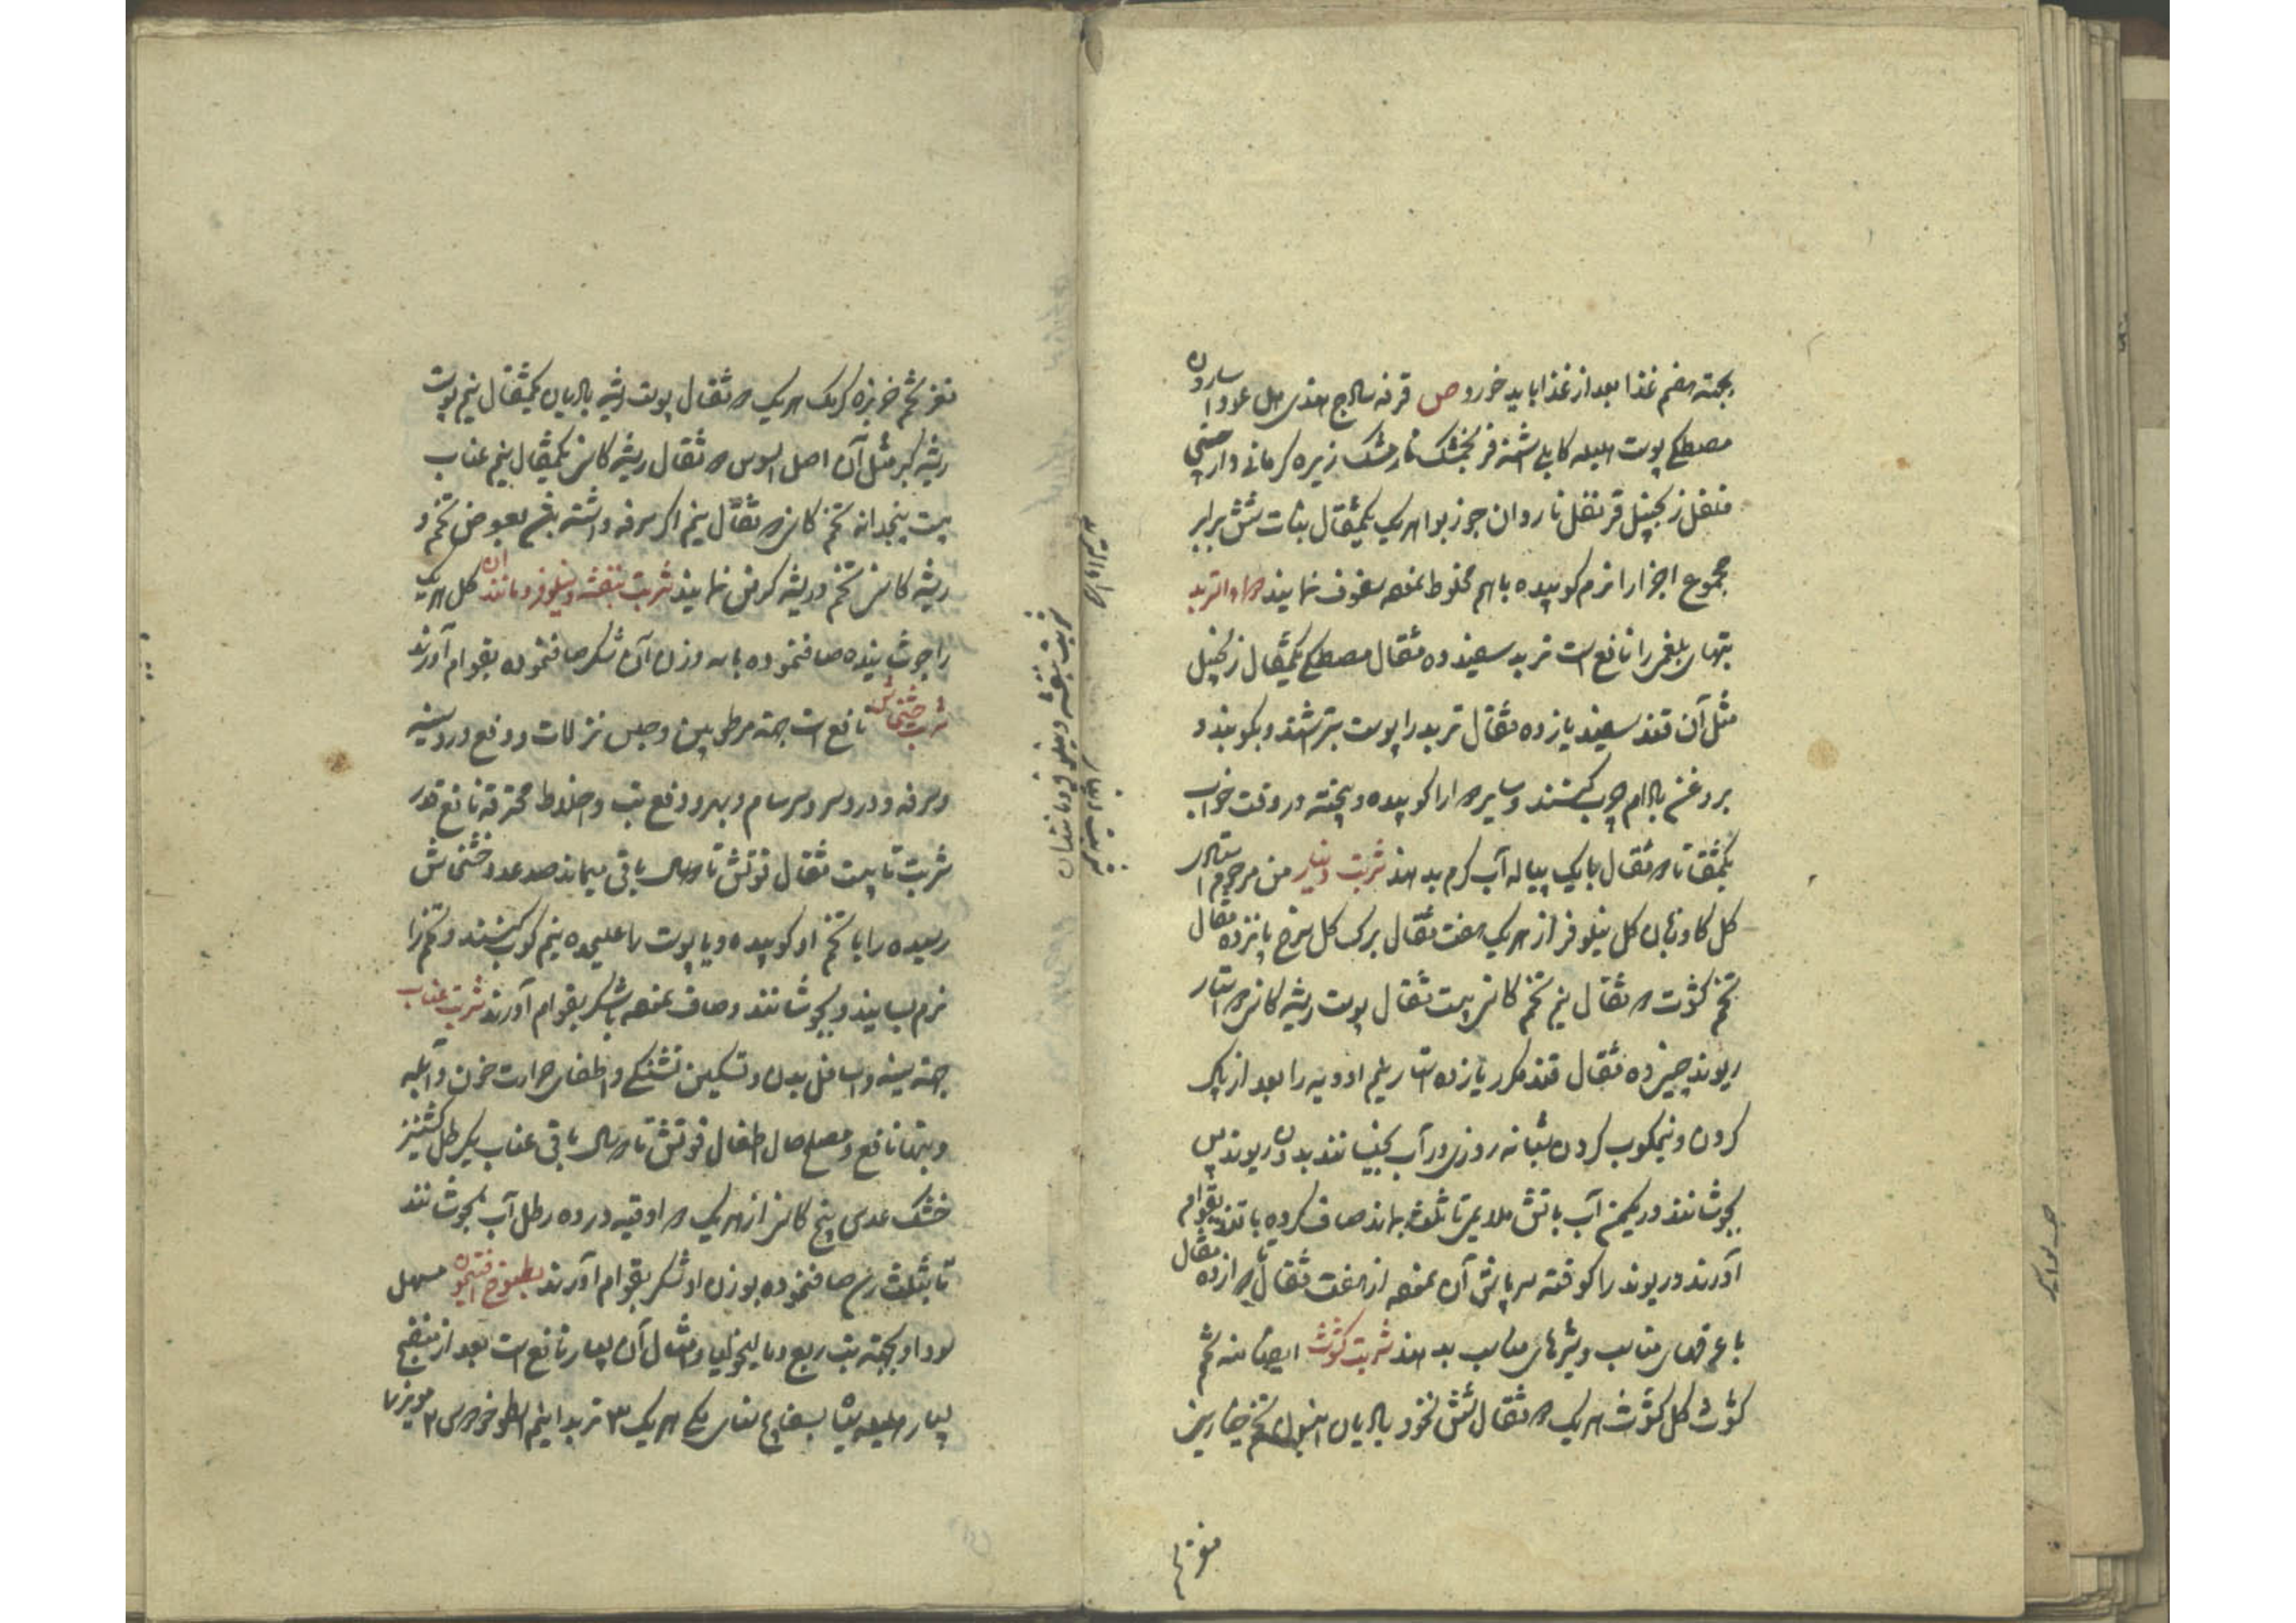 بجهته هضم غذا بعد از غذا باید خورد ص قرفه سادج هندی هل عود اسارون
مصطکی پوست هلیله کابلی اشنه فرنجمشک نارمشک زیره کرمانی دارچینی
فلفل زنجبیل قرنفل ناردان جوزبوا هریک یکمثقال نبات شش برابر
مجموع اجزا را نرم کوبیده باهم مخلوط نموده سفوف نمایند دواء التربد
تبهای بلغمی را نافع است تربد سفید ده مثقال مصطکی یکمثقال زنجبیل
مثل آن قند سفید یازده مثقال تربد را پوست بتراشند و بکوبند و
بروغن بادام چرب کنند و سایر دوا را کوبیده و بیخته در وقت خواب
یکمثقال تا دو مثقال با یک پیاله آب کرم بدهند شربت دینار من مرحوم استادی
کل کاوزبان کل نیلوفر از هریک هفت مثقال برک کل سرخ پانزده مثقال
تخم کثوث دو مثقال نیم تخم کاسنی بیست مثقال پوست ریشه کاسنی دو استار
ریوند چینی ده مثقال قند مکرر یازده استار نیم ادویه را بعد از پاک
کردن و نیمکوب کردن شبانه روزی در آب بخیسانند بدون ریوند پس
بجوشانند در یکمن آب باتش ملایم تا ثلث بماند صاف کرده با قند بقوام
آورند و ریوند را کوفته سرپاش آن نموده از هفت مثقال تا ده مثقال
با عرقهای مناسب و شیرهای مناسب بدهند شربت کثوث ایضا منه تخم
کثوث کل کثوث هریک دو مثقال شش نخود بادیان تخم خیارین
مغز تخم
دواء التربد
شربت دینار
شربت بنفشه و نیلوفر و مانند ان
مغز تخم خربزه کرمک هریک دو مثقال پوست ریشه بادیان یکمثقال نیم پوست
ریشه کبر مثل آن اصل السوس دو مثقال ریشه کاسنی یکمثقال نیم عناب
بیست پنجدانه تخم کاسنی دو مثقال نیم اکر سرفه داشته باشد بعوض تخم و
ریشه کاسنی تخم و ریشه کرفس نمایند شربت بنفشه و نیلوفر و مانند ان کل هریک
را جوشانیده صاف نموده با سه وزن آن شکر صاف نموده بقوام آورند
شربت خشخاش نافع است جهته مرطوبین و حبس نزلات و دفع درد سینه
و سرفه و درد سر و سرسام و سهر و دفع تب و اخلاط محترقه نافع قدر
شربت تا بیست مثقال قوتش تا دو سال باقی میماند صد عدد خشخاش
رسیده را با تخم او کوبیده و یا پوست را علیحده نیم کوب کنند و تخم را
نرم بسایند و بجوشانند و صاف نموده با شکر بقوام آورند شربت عناب
جهته سینه و اسافل بدن و تسکین تشنکی و اطفای حرارت خون و آبله
و تبها نافع و مصلح حال اطفال قوتش تا دو سال باقی عناب یکرطل کشنیز
خشک عدس بیخ کاسنی از هریک دو اوقیه در ده رطل آب بجوشانند
تا بثلث رسد صاف نموده بوزن او شکر بقوام آورند مطبوخ افتیمون مسهل
سودا و بجهته تب ربع و مالیخولیا و امثال آن بسیار نافع است بعد از منضج
بسیار هلیله سیاه بسفایج سنای مکی هریک ۳ تربد اینم اسطوخودوس ۲ مویز ما